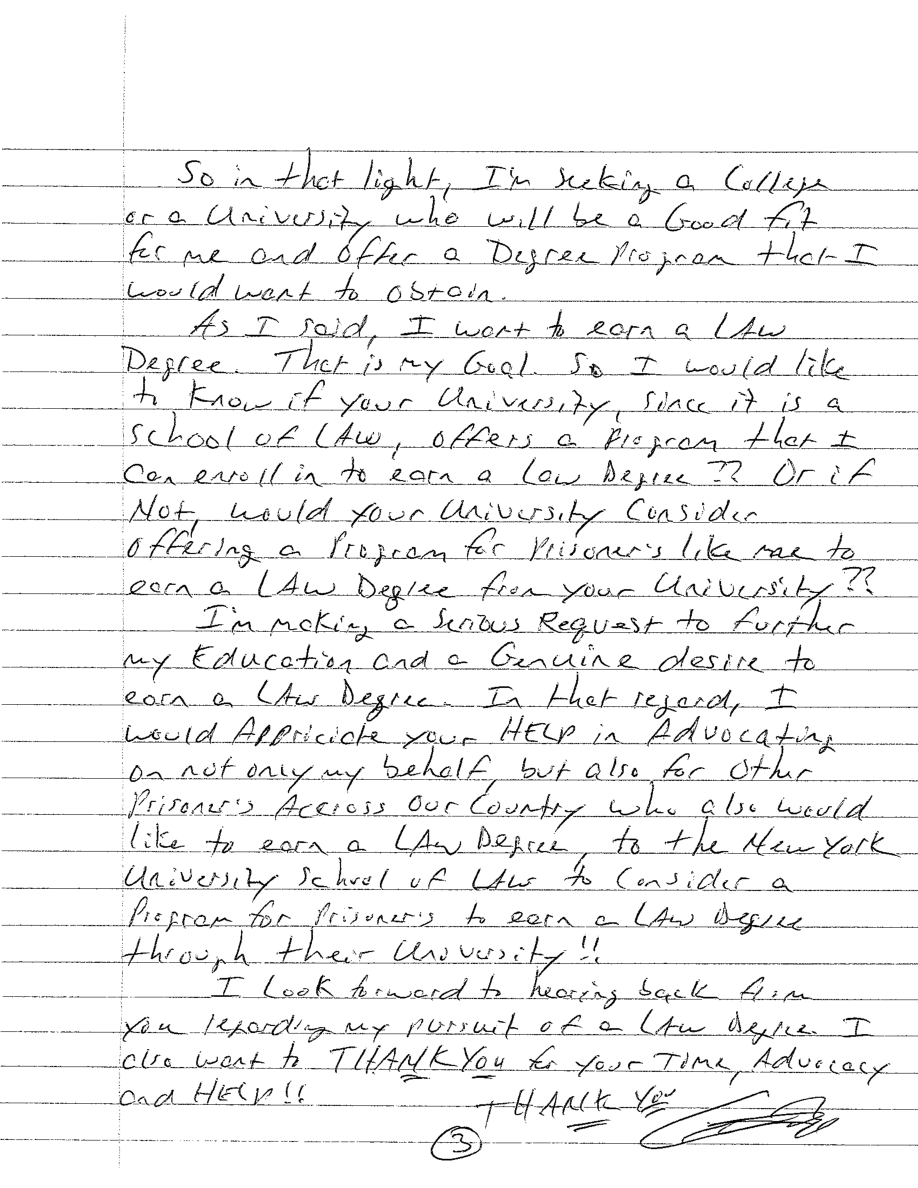 So in that light, I'm seeking a College
or a University who will be a Good fit
for me and offer a Degree Program that I
would want to obtain.
As I said, I want to earn a LAw
Degree. That is my Goal. So I would like
to know if your University, since it is a
School of LAw, offers a Program that I
Can enroll in to earn a Law Degree?? Or if
Not, would your University Consider
offering a Program for Prisoner's like me to
earn a LAw Degree from your University??
I'm making a Serious Request to further
my Education and a Genuine desire to
earn a LAw Degree. In that regard, I
would Appriciate your HELP in Advocating
on not only my behalf, but also for Other
Prisoner's Accross Our Country who also would
like to earn a LAw Degree, to the New York
University School of LAw to Consider a
Program for Prisoner's to earn a LAw Degree
through their University!!
I Look forward to hearing back from
you regarding my pursuit of a LAw Degree. I
also want to THANK YOU for your Time, Advocacy
and HELP!!
THANK YOU
3